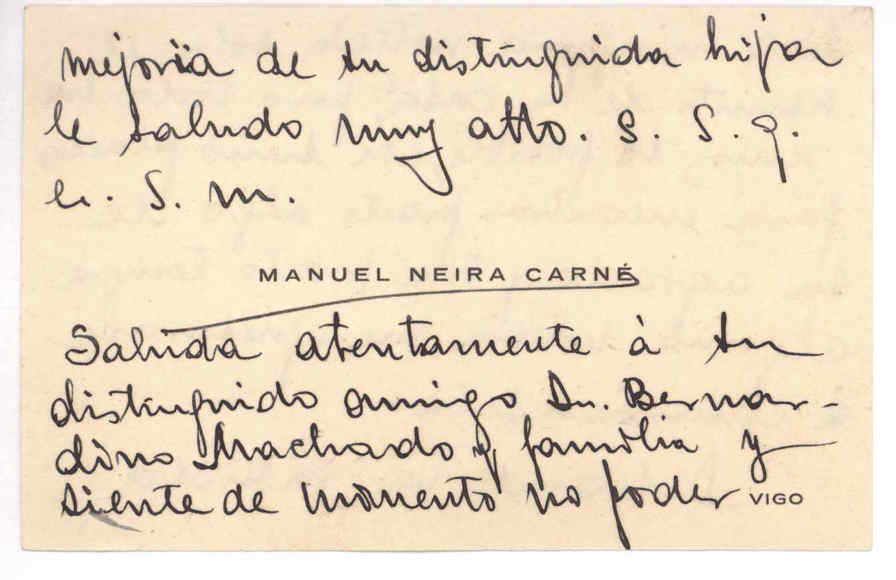 mejoria de su distinguida hija
le saludo muy atto. S. S. q.
e. S. m.
MANUEL NEIRA CARNÉ
Saluda atentamente à su
distinguido amigo Dr. Bernar-
dino Machado y familia y
siente de momento no poder
VIGO